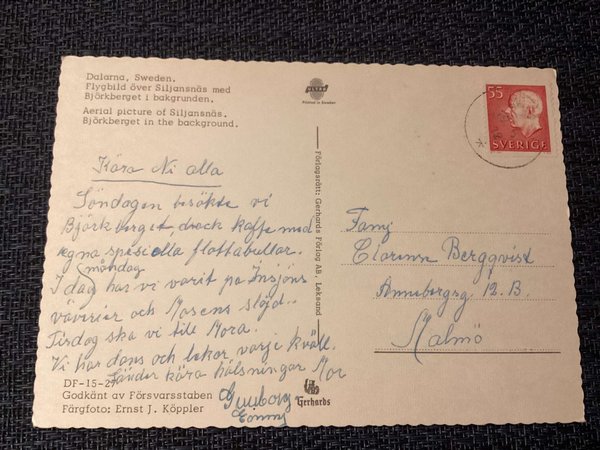 Dalarna, Sweden.
Flygbild över Siljansnäs med
Björkberget i bakgrunden.
Aerial picture of Siljansnäs.
Björkberget in the background.
ULTRA
Printed in Sweden
55
SVERIGE
Kära Ni alla
Söndagen besökte vi
Björkberget, drack kaffe med
egna spesiella flottabullar.
måndag
I dag har vi varit på Insjöns
väverier och Mosens slöjd..
Tisdag ska vi till Mora.
Vi har dans och lekar varje kväll.
Sänder kära hälsningar Mor
Gunborg
DF-15-27
Godkänt av Försvarsstaben
Färgfoto: Ernst J. Köppler
Förlagsrätt: Gerhards Förlag AB, Leksand
Gerhards
Famj
Bergqvist
Annebergsg 12. B.
Malmö